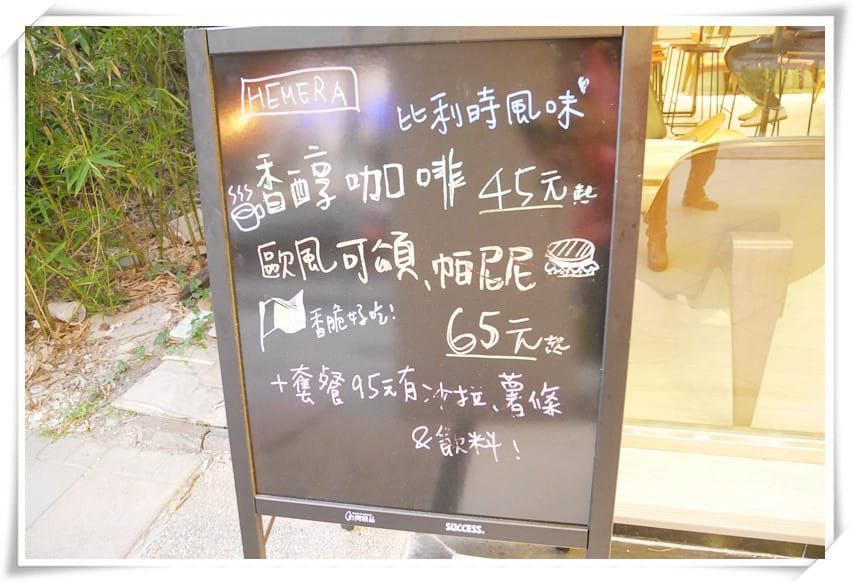 HEMERA
比利時風味
香醇咖啡 45元起
歐風可頌、帕尼尼
香脆好吃!
65元起
+套餐95元有沙拉、薯條
&飲料!
SUCCESS